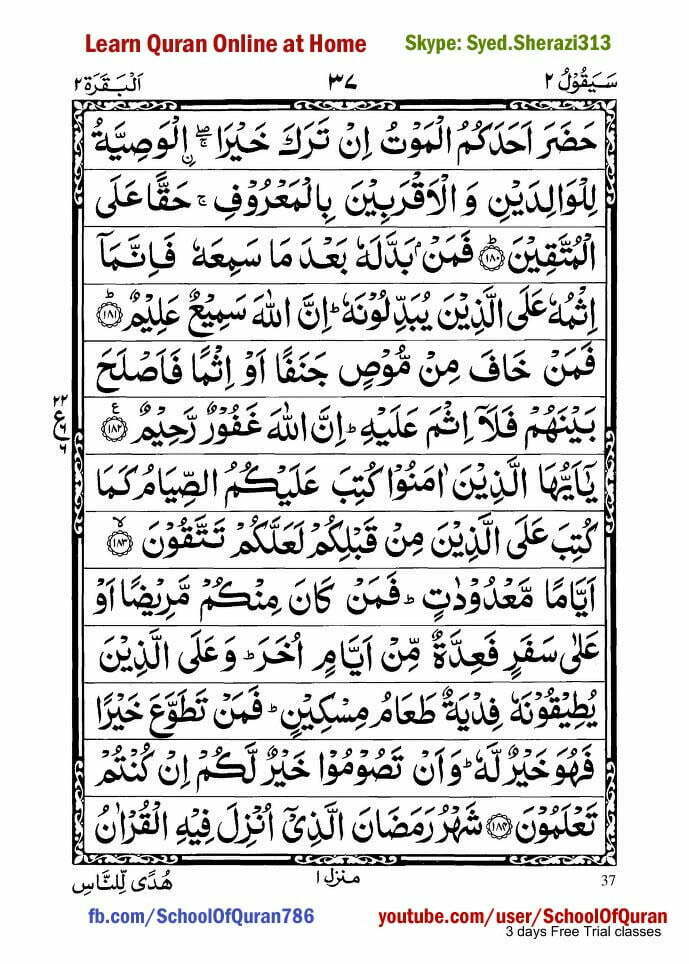 Learn Quran Online at Home Skype: Syed.Sherazi313
سَيَقُوْلُ ٢ ٣٧ اَلْبَقَرَة ٢
حَضَرَ اَحَدَكُمُ الْمَوْتُ اِنْ تَرَكَ خَيْرَا ۖۚ اۨلْوَصِيَّةُ
لِلْوَالِدَيْنِ وَ الْاَقْرَبِيْنَ بِالْمَعْرُوْفِ ۚ حَقًّا عَلَى
الْمُتَّقِيْنَ ؕ ﴿١٨٠﴾ فَمَنْۢ بَدَّلَهٗ بَعْدَ مَا سَمِعَهٗ فَاِنَّمَاۤ
اِثْمُهٗ عَلَى الَّذِيْنَ يُبَدِّلُوْنَهٗ ؕ اِنَّ اللّٰهَ سَمِيْعٌ عَلِيْمٌ ؕ ﴿١٨١﴾
فَمَنْ خَافَ مِنْ مُّوْصٍ جَنَفًا اَوْ اِثْمًا فَاَصْلَحَ
بَيْنَهُمْ فَلَاۤ اِثْمَ عَلَيْهِ ؕ اِنَّ اللّٰهَ غَفُوْرٌ رَّحِيْمٌ ﴿١٨٢﴾ ع ٢٢ ٦ ٦
يٰۤاَيُّهَا الَّذِيْنَ اٰمَنُوْا كُتِبَ عَلَيْكُمُ الصِّيَامُ كَمَا
كُتِبَ عَلَى الَّذِيْنَ مِنْ قَبْلِكُمْ لَعَلَّكُمْ تَتَّقُوْنَ ۙ ﴿١٨٣﴾
اَيَّامًا مَّعْدُوْدٰتٍ ؕ فَمَنْ كَانَ مِنْكُمْ مَّرِيْضًا اَوْ
عَلٰى سَفَرٍ فَعِدَّةٌ مِّنْ اَيَّامٍ اُخَرَ ؕ وَ عَلَى الَّذِيْنَ
يُطِيْقُوْنَهٗ فِدْيَةٌ طَعَامُ مِسْكِيْنٍ ؕ فَمَنْ تَطَوَّعَ خَيْرًا
فَهُوَ خَيْرٌ لَّهٗ ؕ وَ اَنْ تَصُوْمُوْا خَيْرٌ لَّكُمْ اِنْ كُنْتُمْ
تَعْلَمُوْنَ ﴿١٨٤﴾ شَهْرُ رَمَضَانَ الَّذِيْۤ اُنْزِلَ فِيْهِ الْقُرْاٰنُ
هُدًى لِّلنَّاسِ منزل ١ 37
fb.com/SchoolOfQuran786 youtube.com/user/SchoolOfQuran
3 days Free Trial classes